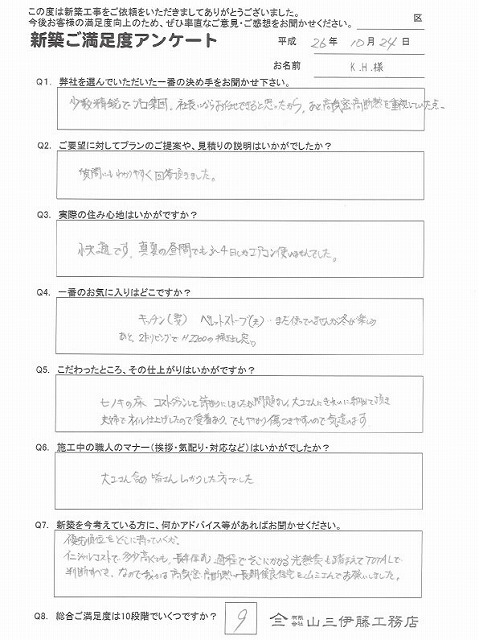 この度は新築工事をご依頼をいただきましてありがとうございました。
今後お客様の満足度向上のため、ぜひ率直なご意見・ご感想をお聞かせください。
区
新築ご満足度アンケート
平成 26年 10月 24日
お名前 K.H.様
Q1. 弊社を選んでいただいた一番の決め手をお聞かせ下さい。
少数精鋭でプロ集団。社長にならお任せできると思ったから。あと高気密高断熱を重視していた点。
Q2. ご要望に対してプランのご提案や、見積りの説明はいかがでしたか?
質問にもわかりやすく回答頂きました。
Q3. 実際の住み心地はいかがですか?
快適です。真夏の昼間でも3~4日しかエアコン使いませんでした。
Q4. 一番のお気に入りはどこですか?
キッチン(妻) ペレットストーブ(夫)…まだ使っていませんが冬が楽しみ
あと、2Fリビングで
Q5. こだわったところ、その仕上がりはいかがですか?
ヒノキの床 コストダウンして節有りにしましたが問題なし。大工さんにきれいに
夫婦でオイル仕上げしたので愛着あり。でもやはり傷つきやすいので気遣います
Q6. 施工中の職人のマナー(挨拶・気配り・対応など)はいかがでしたか?
大工さん含め皆さんしっかりした方でした
Q7. 新築を今考えている方に、何かアドバイス等があればお聞かせください。
優先順位をどこに持っていくか。
イニシャルコストで多少高くても、長年住む過程でそこにかかる光熱費も踏まえてTOTALで
判断すべき。なので我が家は高気密高断熱+長期優良住宅を山三さんでお願いしました。
Q8. 総合ご満足度は10段階でいくつですか?
9
有限会社 山三伊藤工務店